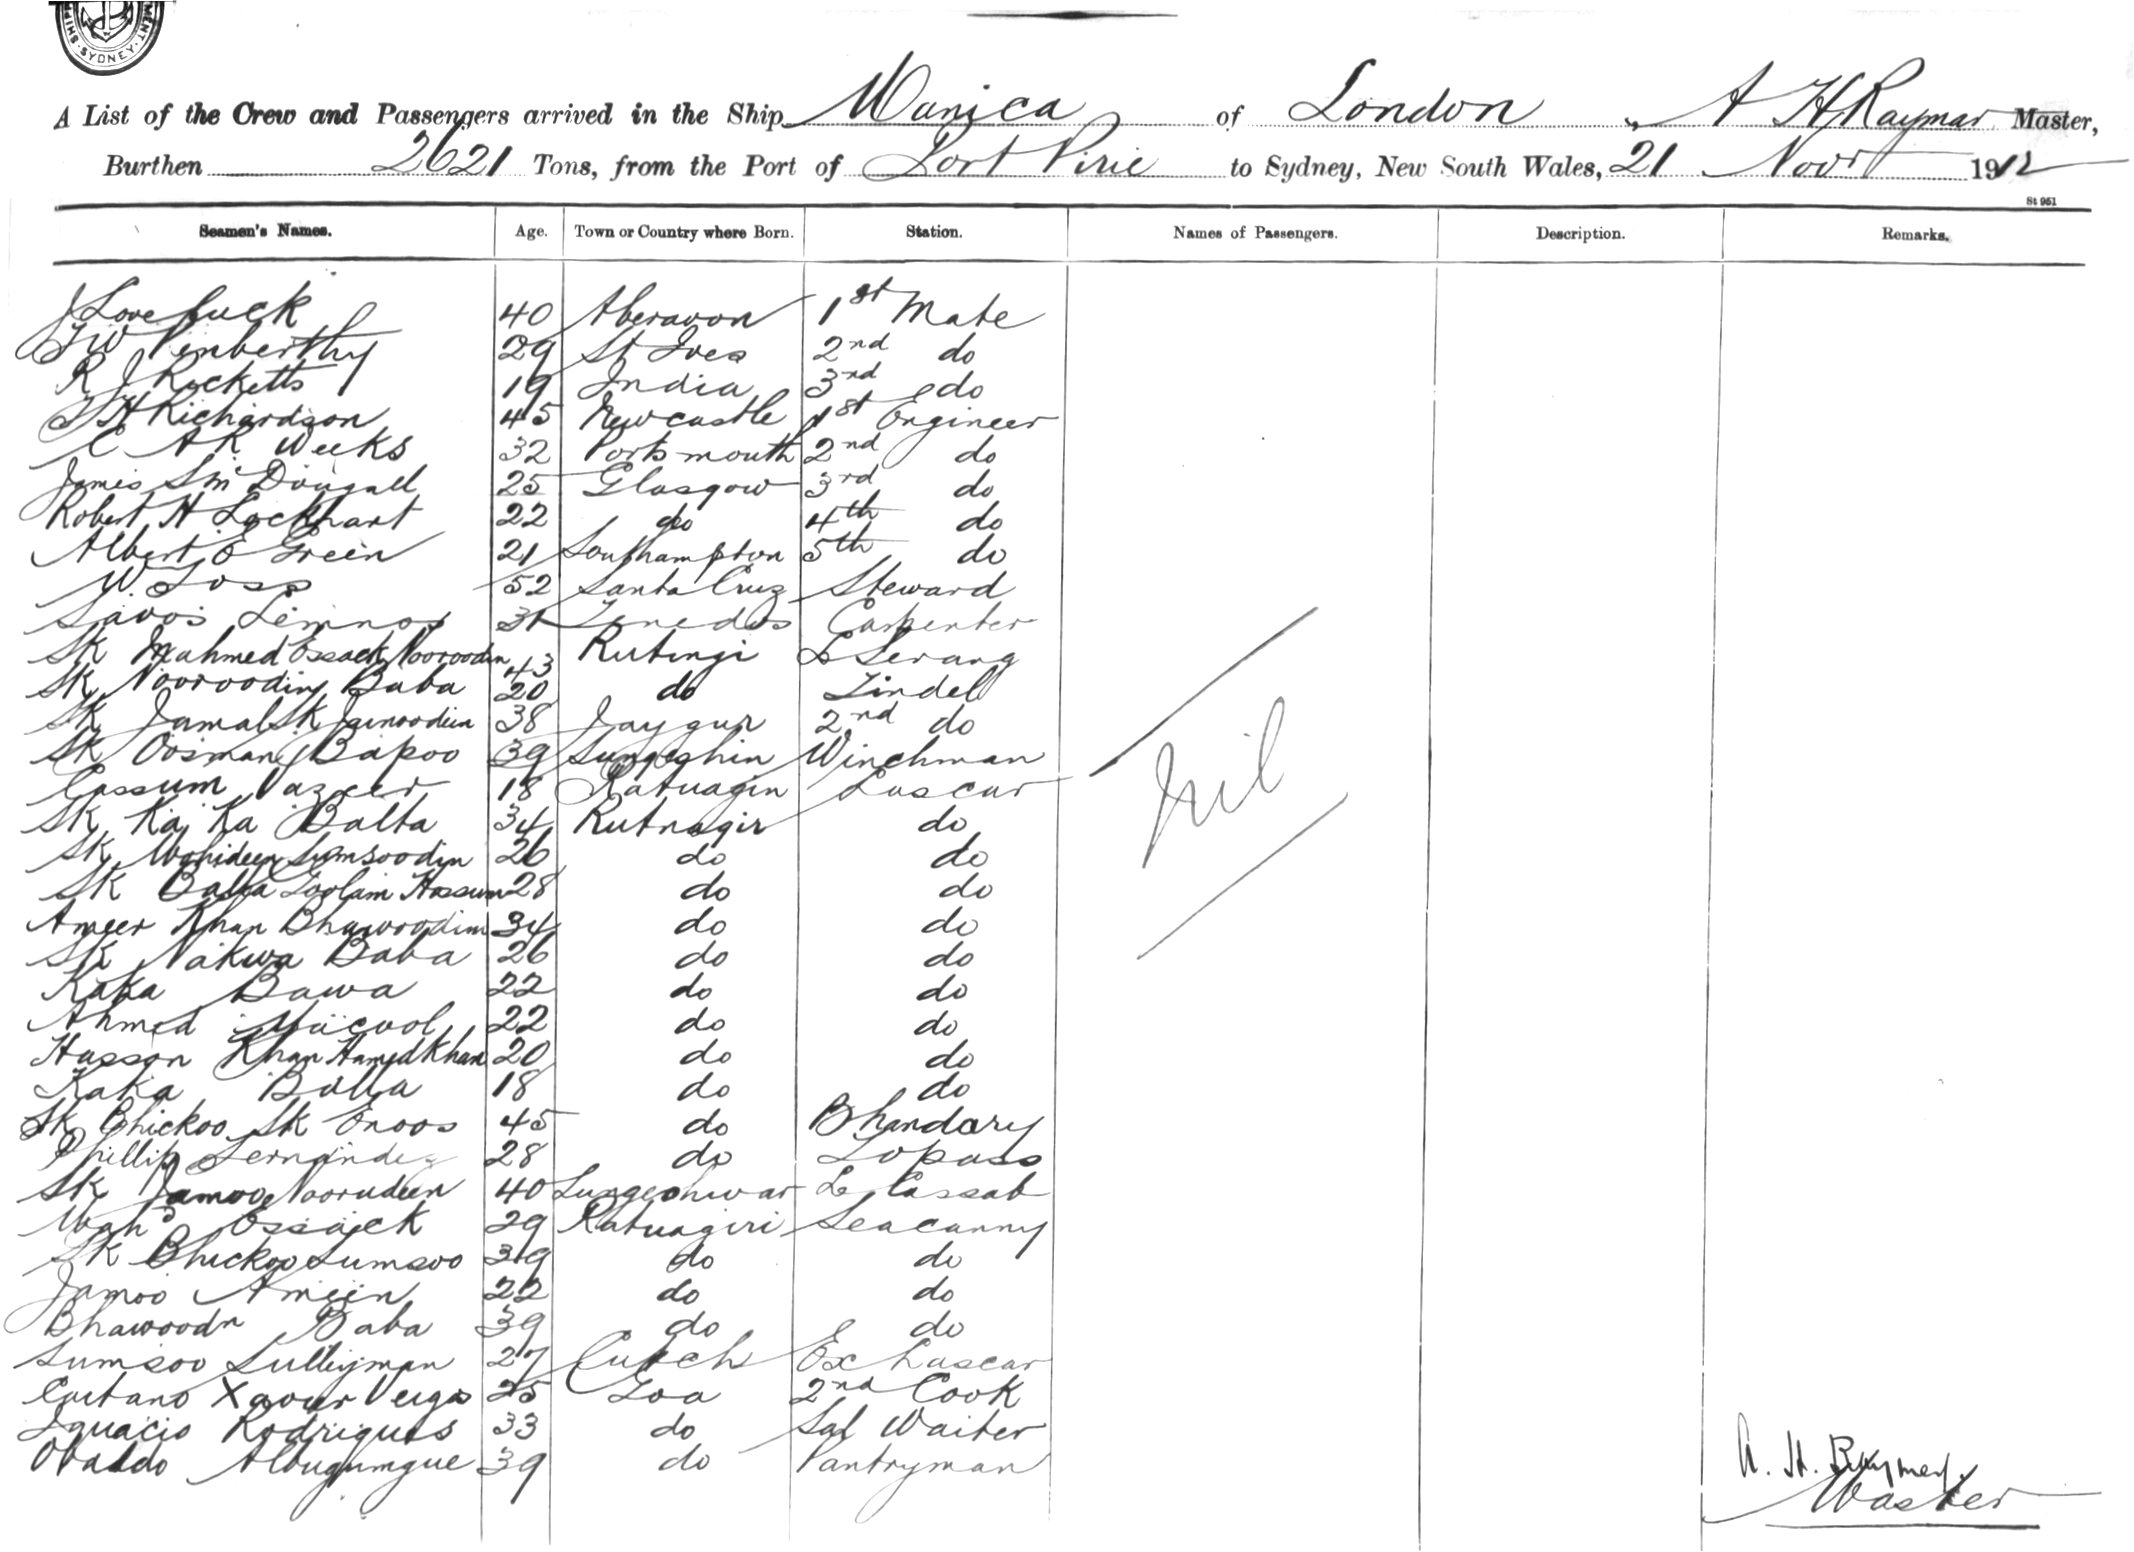 SYDNEY
A List of the Crew and Passengers arrived in the Ship Manica of London, A H Raymar Master,
Burthen 2621 Tons, from the Port of Port Pirie to Sydney, New South Wales, 21 Novr 1912
St 951
Seamen's Names. Age. Town or Country where Born. Station. Names of Passengers. Description. Remarks.
J Loveluck 40 Aberavon 1st Mate
Penberthy 29 St Ives 2nd do
R J Ricketts 19 India 3rd do
Richardson 45 Newcastle 1st Engineer
C A R Weeks 32 Portsmouth 2nd do
James S McDougall 25 Glasgow 3rd do
Robert H Lockhart 22 do 4th do
Albert E Green 21 Southampton 5th do
W. 52 Santa Cruz Steward
Savos Limnos 31 Tenedos Carpenter
SK Mahmed Essack Nooroodin 43 Serang
SK Nooroodin Baba 20 do Tindell
SK Jamal SK Jainoodin 38 Jaygur 2nd do
SK Oosman Bapoo 39 Winchman
Cassum Vazeer 18 Lascar
SK Ka Ka Balla 34 Rutnagir do
SK Mohideen Sumsoodin 26 do do
SK Balla Goolam Hossum 28 do do
Ameer Khan Bhawoodin 34 do do
SK Nakwa Baba 26 do do
Kaka Bawa 22 do do
Ahmed 22 do do
Hasson Khan Hamed Khan 20 do do
Kaka Balla 18 do do
SK Bhickoo SK Enoos 45 do Bhandary
Phillip Fernandez 28 do Topass
SK Jamoo Noorudeen 40 Cassab
Mah Essack 29 Ratnagiri Seacunny
SK Bhickoo Sumsoo 39 do do
Jamoo Ameen 22 do do
Bhawoodn Baba 39 do do
Sumsoo Sulleyman 27 Cutch Ex Lascar
Caetano Xavier Veigas 25 Goa 2nd Cook
Ignacio Rodrigues 33 do Sal Waiter
39 do Pantryman
Nil
A. H.
Master